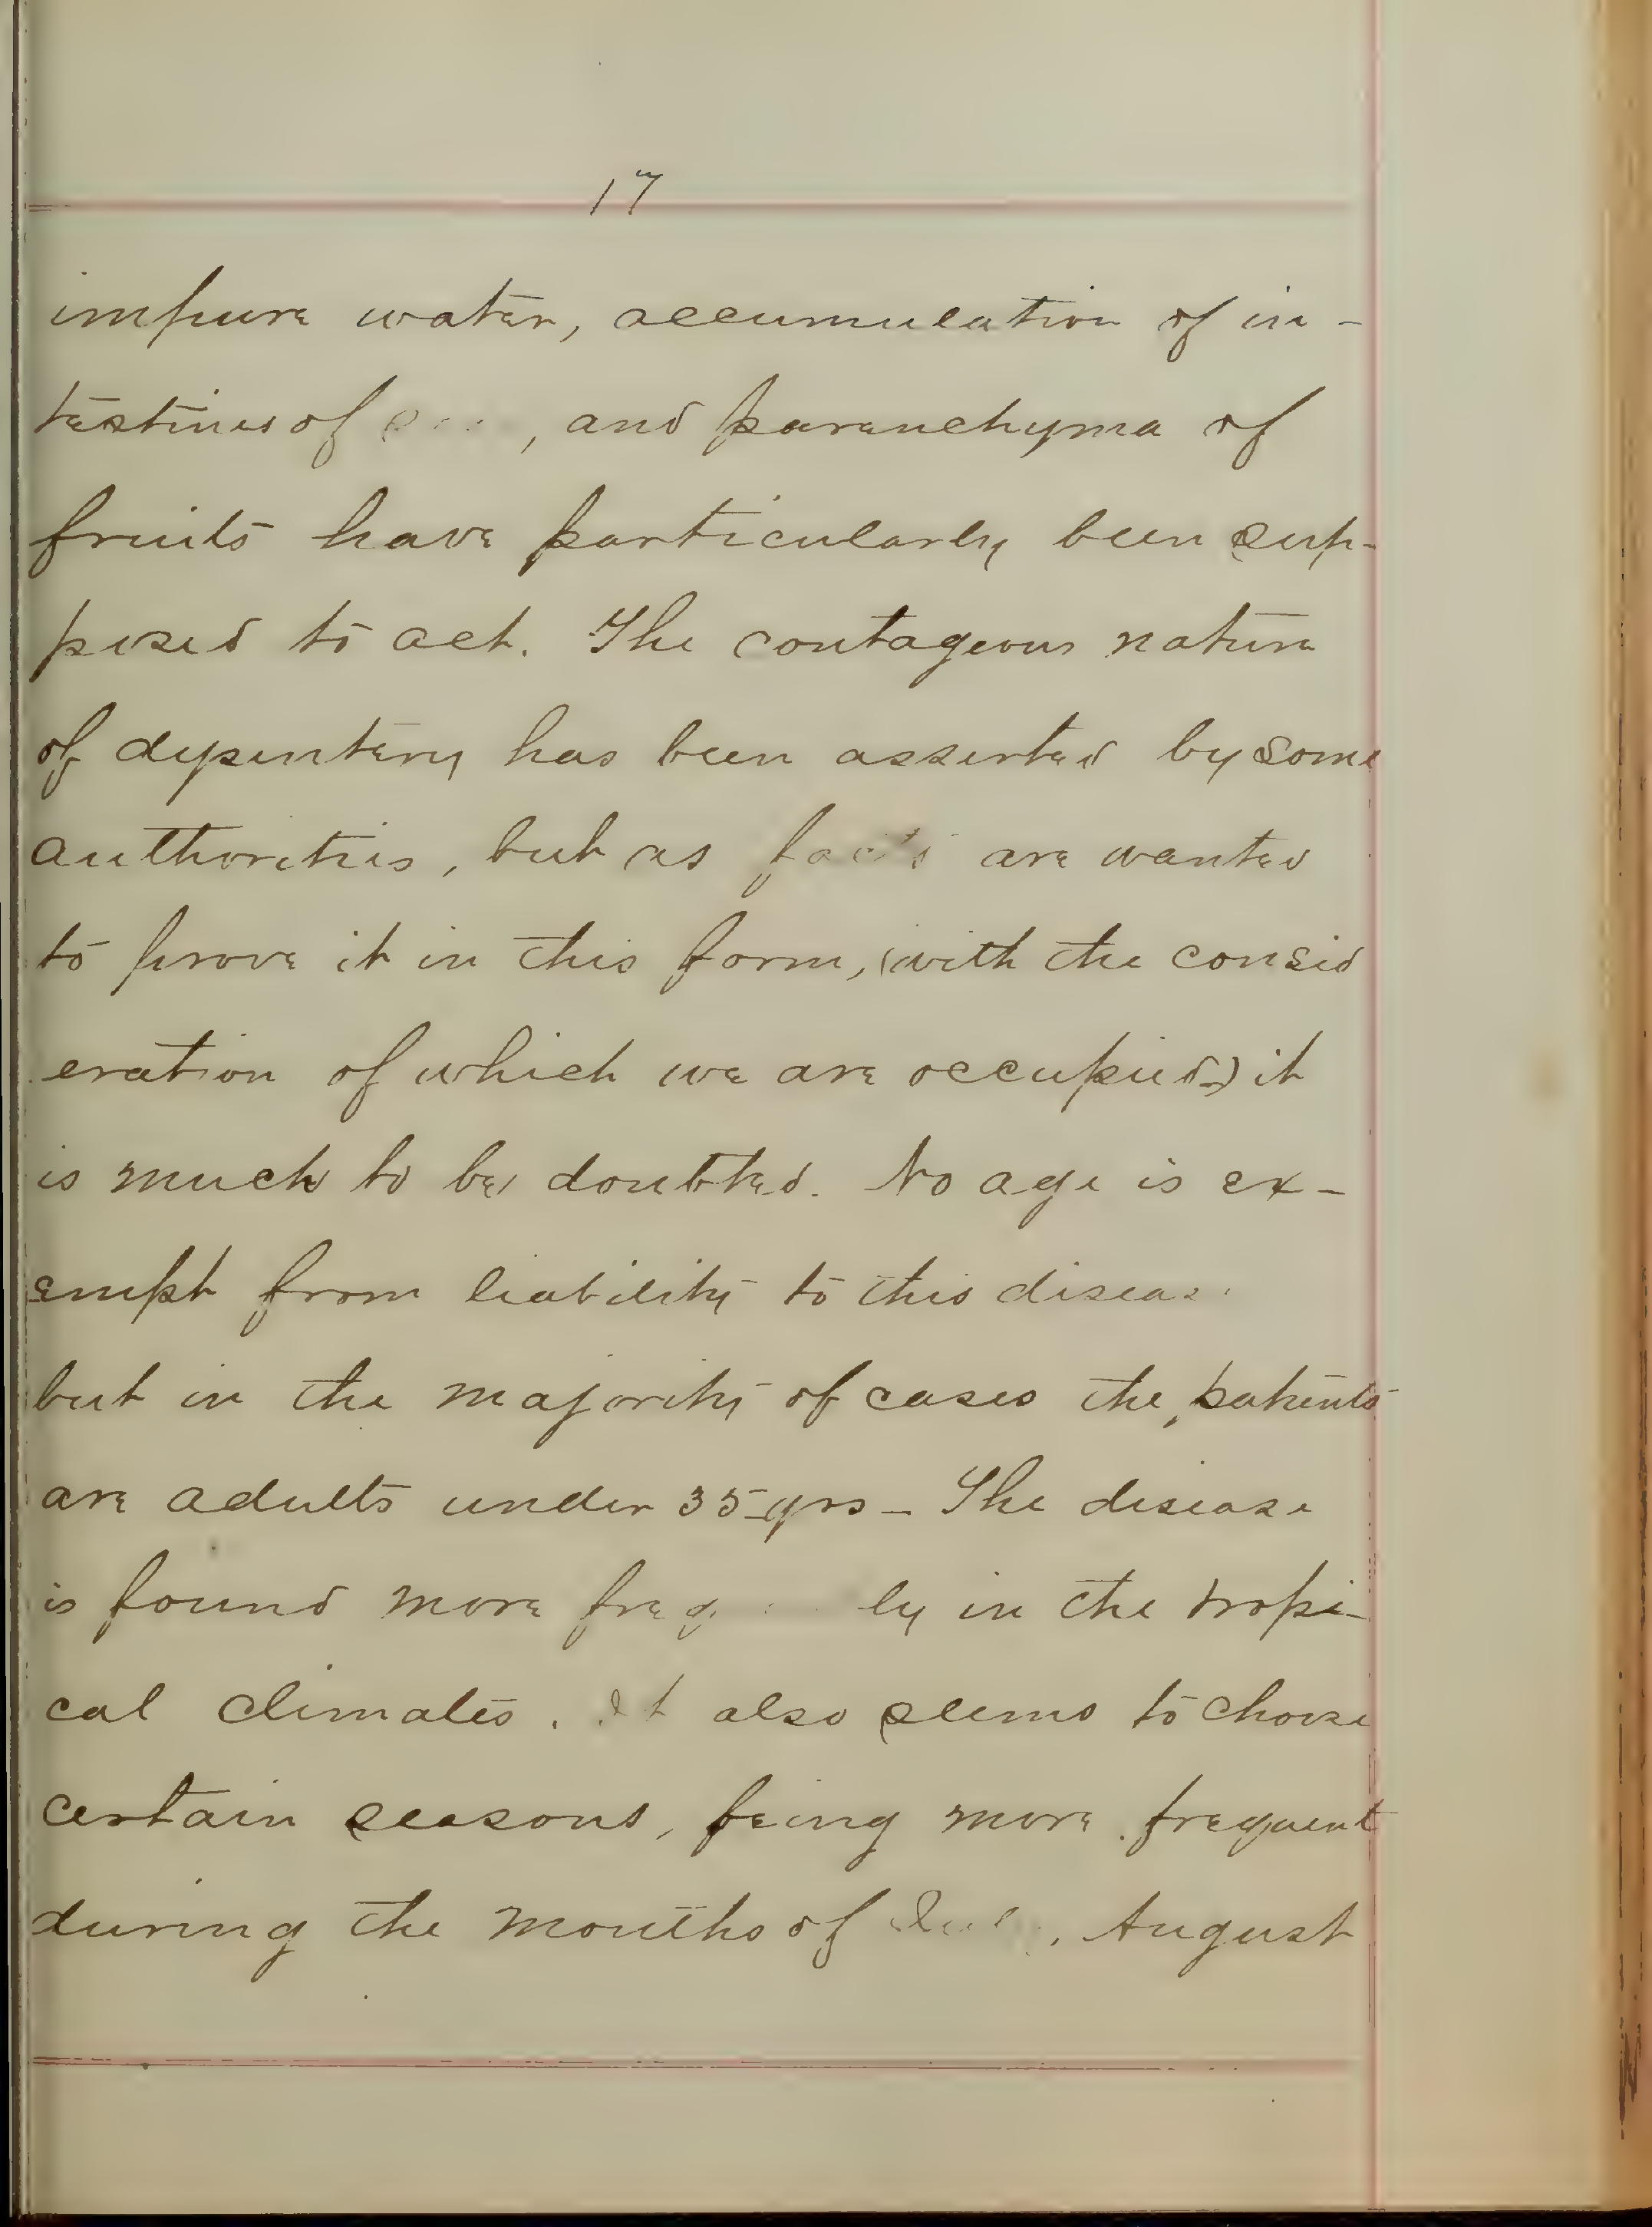 17
impure water, accumulation of in-
testines of , and parenchyma of
fruits have particularly been sup-
posed to act. The contageous nature
of dysentery has been asserted by some
authorities, but as facts are wanted
to prove it in this form, (with the consid
eration of which we are occupied) it
is much to be doubted. No age is ex-
empt from liability to this disease
but in the majority of cases the, patients
are adults under 35 yrs - The disease
is found more ly in the tropi-
cal climates. It also seems to choose
certain seasons, being more frequent
during the months of July, August